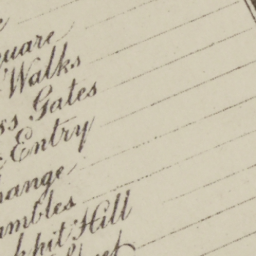 quare
Walks
ss Gates
Entry
hange
ambles
kpit Hill